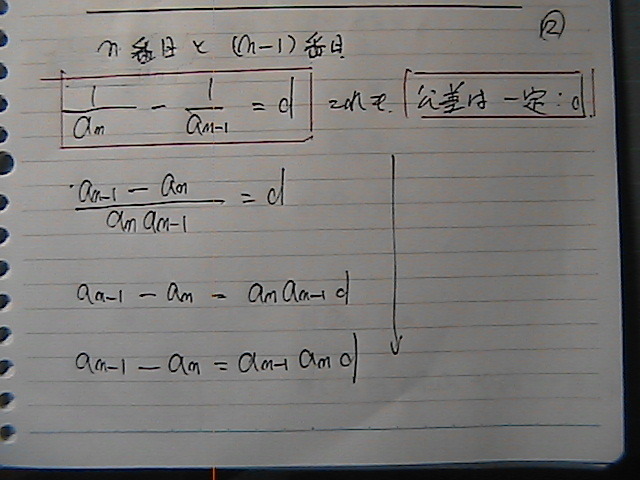 ②
n番目と(n-1)番目
1/aₙ - 1/aₙ₋₁ = d これも 公差は一定:d
(aₙ₋₁ - aₙ)/(aₙ aₙ₋₁) = d
aₙ₋₁ - aₙ = aₙ aₙ₋₁ d
aₙ₋₁ - aₙ = aₙ₋₁ aₙ d